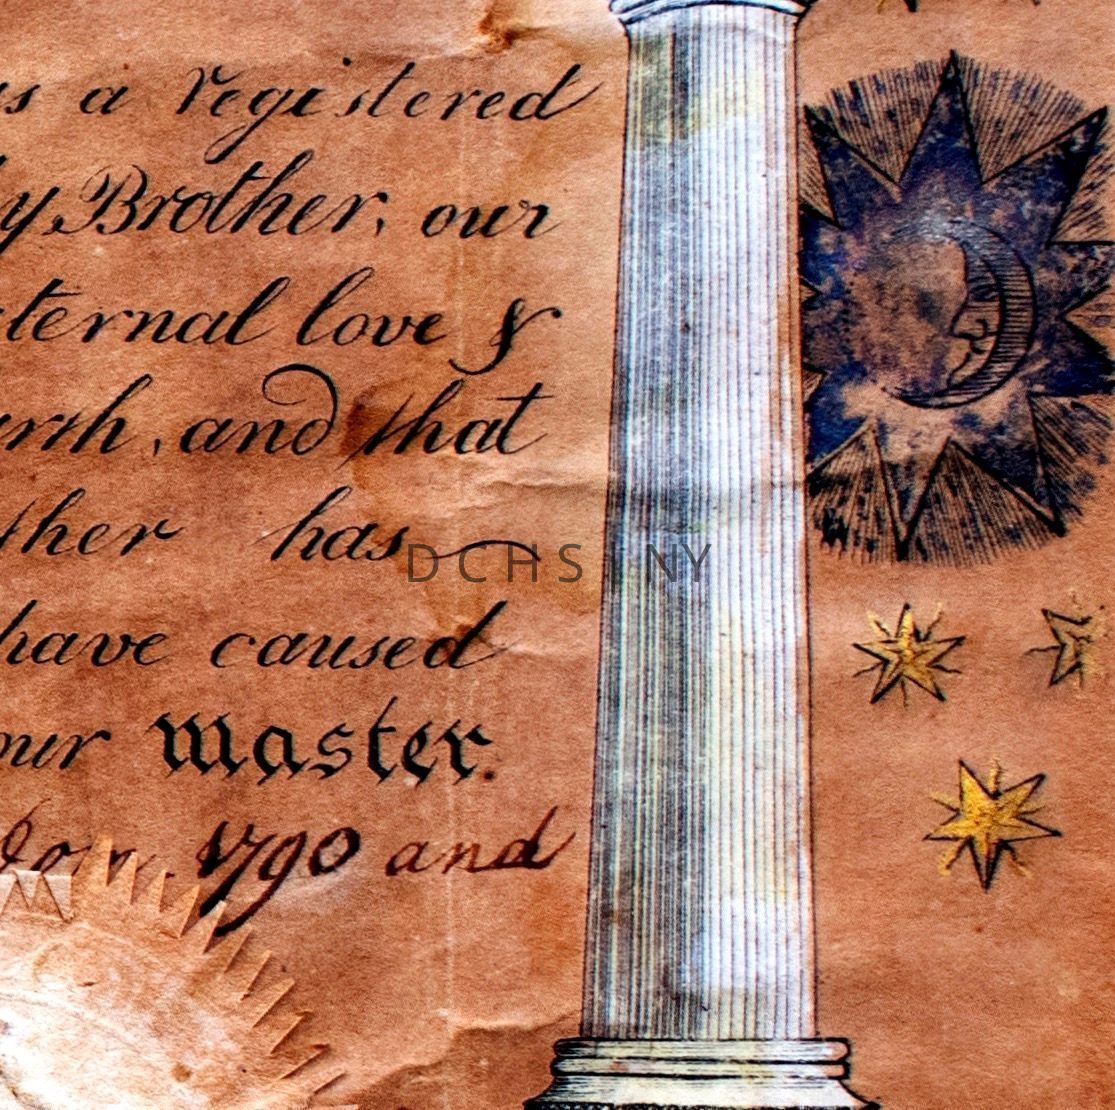 a registered
Brother, our
ternal love &
and that
ther has
DCHS NY
have caused
our master.
1790 and